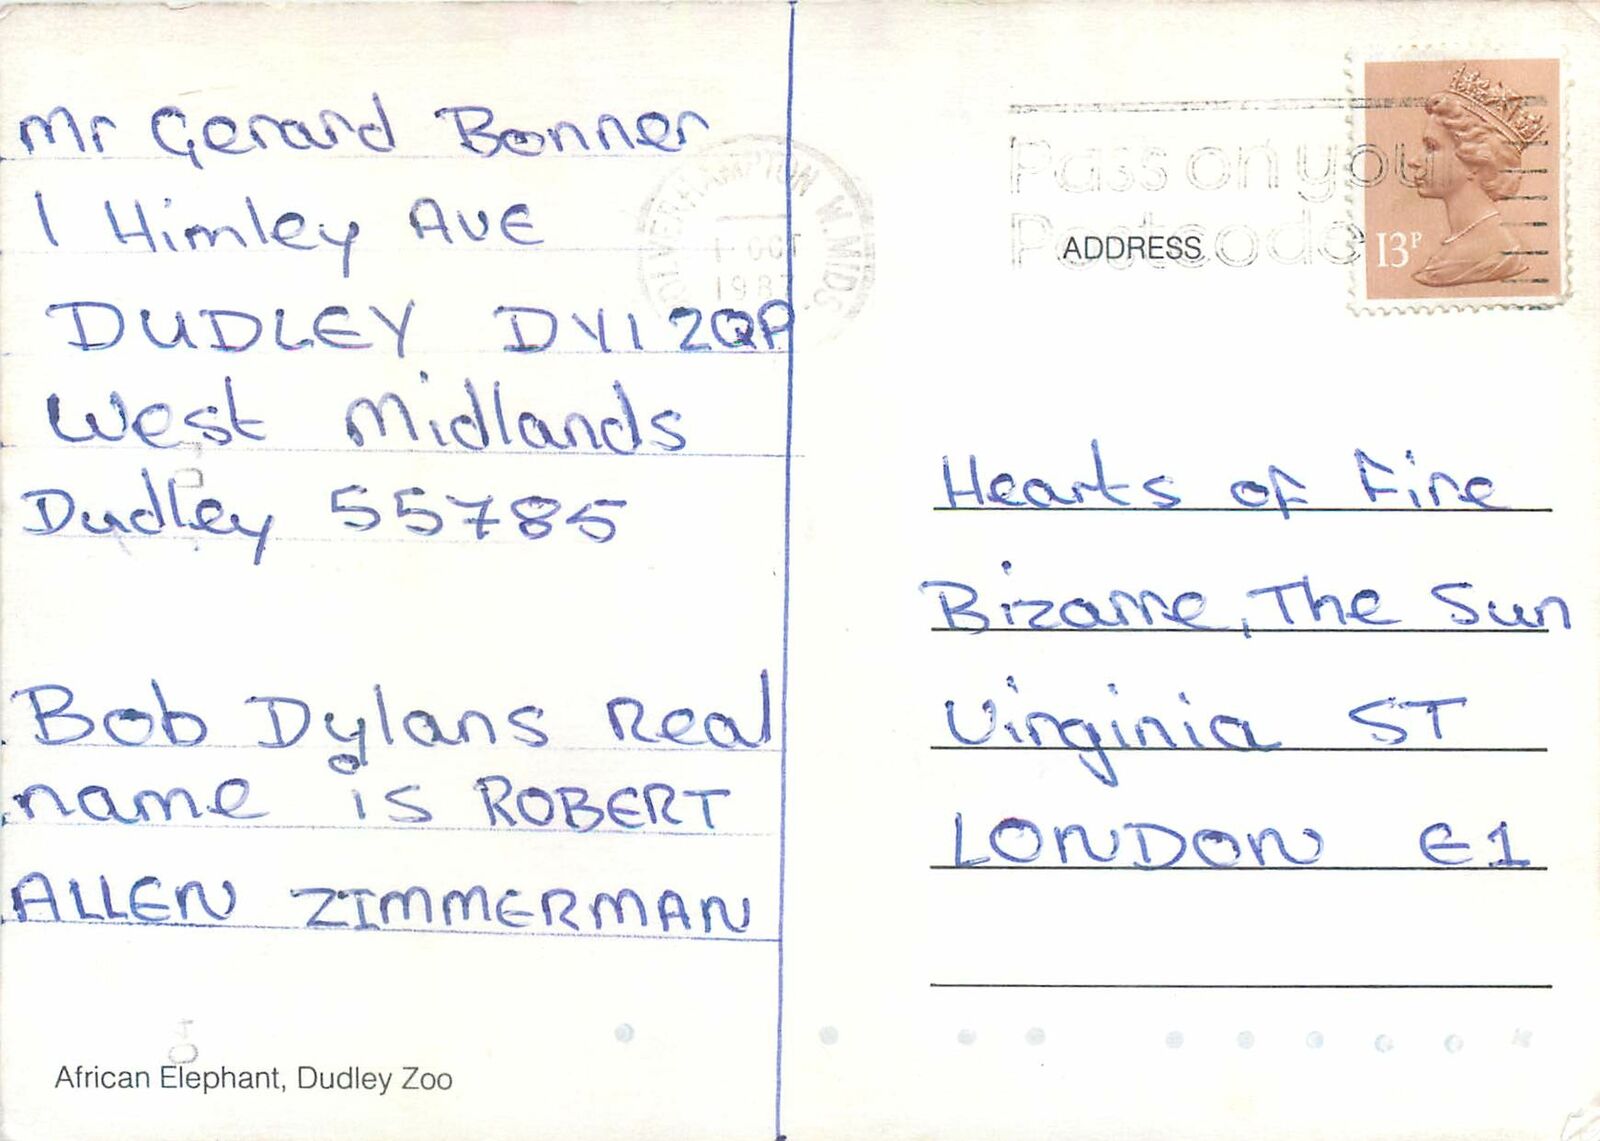 Mr Gerard Bonner
1 Himley AVE
DUDLEY DY1 2QP
West Midlands
Dudley 55785
Bob Dylans Real
name is ROBERT
ALLEN ZIMMERMAN
African Elephant, Dudley Zoo
WOLVERHAMPTON W. MIDS.
1 OCT
Pass on your
Postcode
ADDRESS
13P
Hearts of Fire
Bizarre, The Sun
Virginia ST
LONDON E1